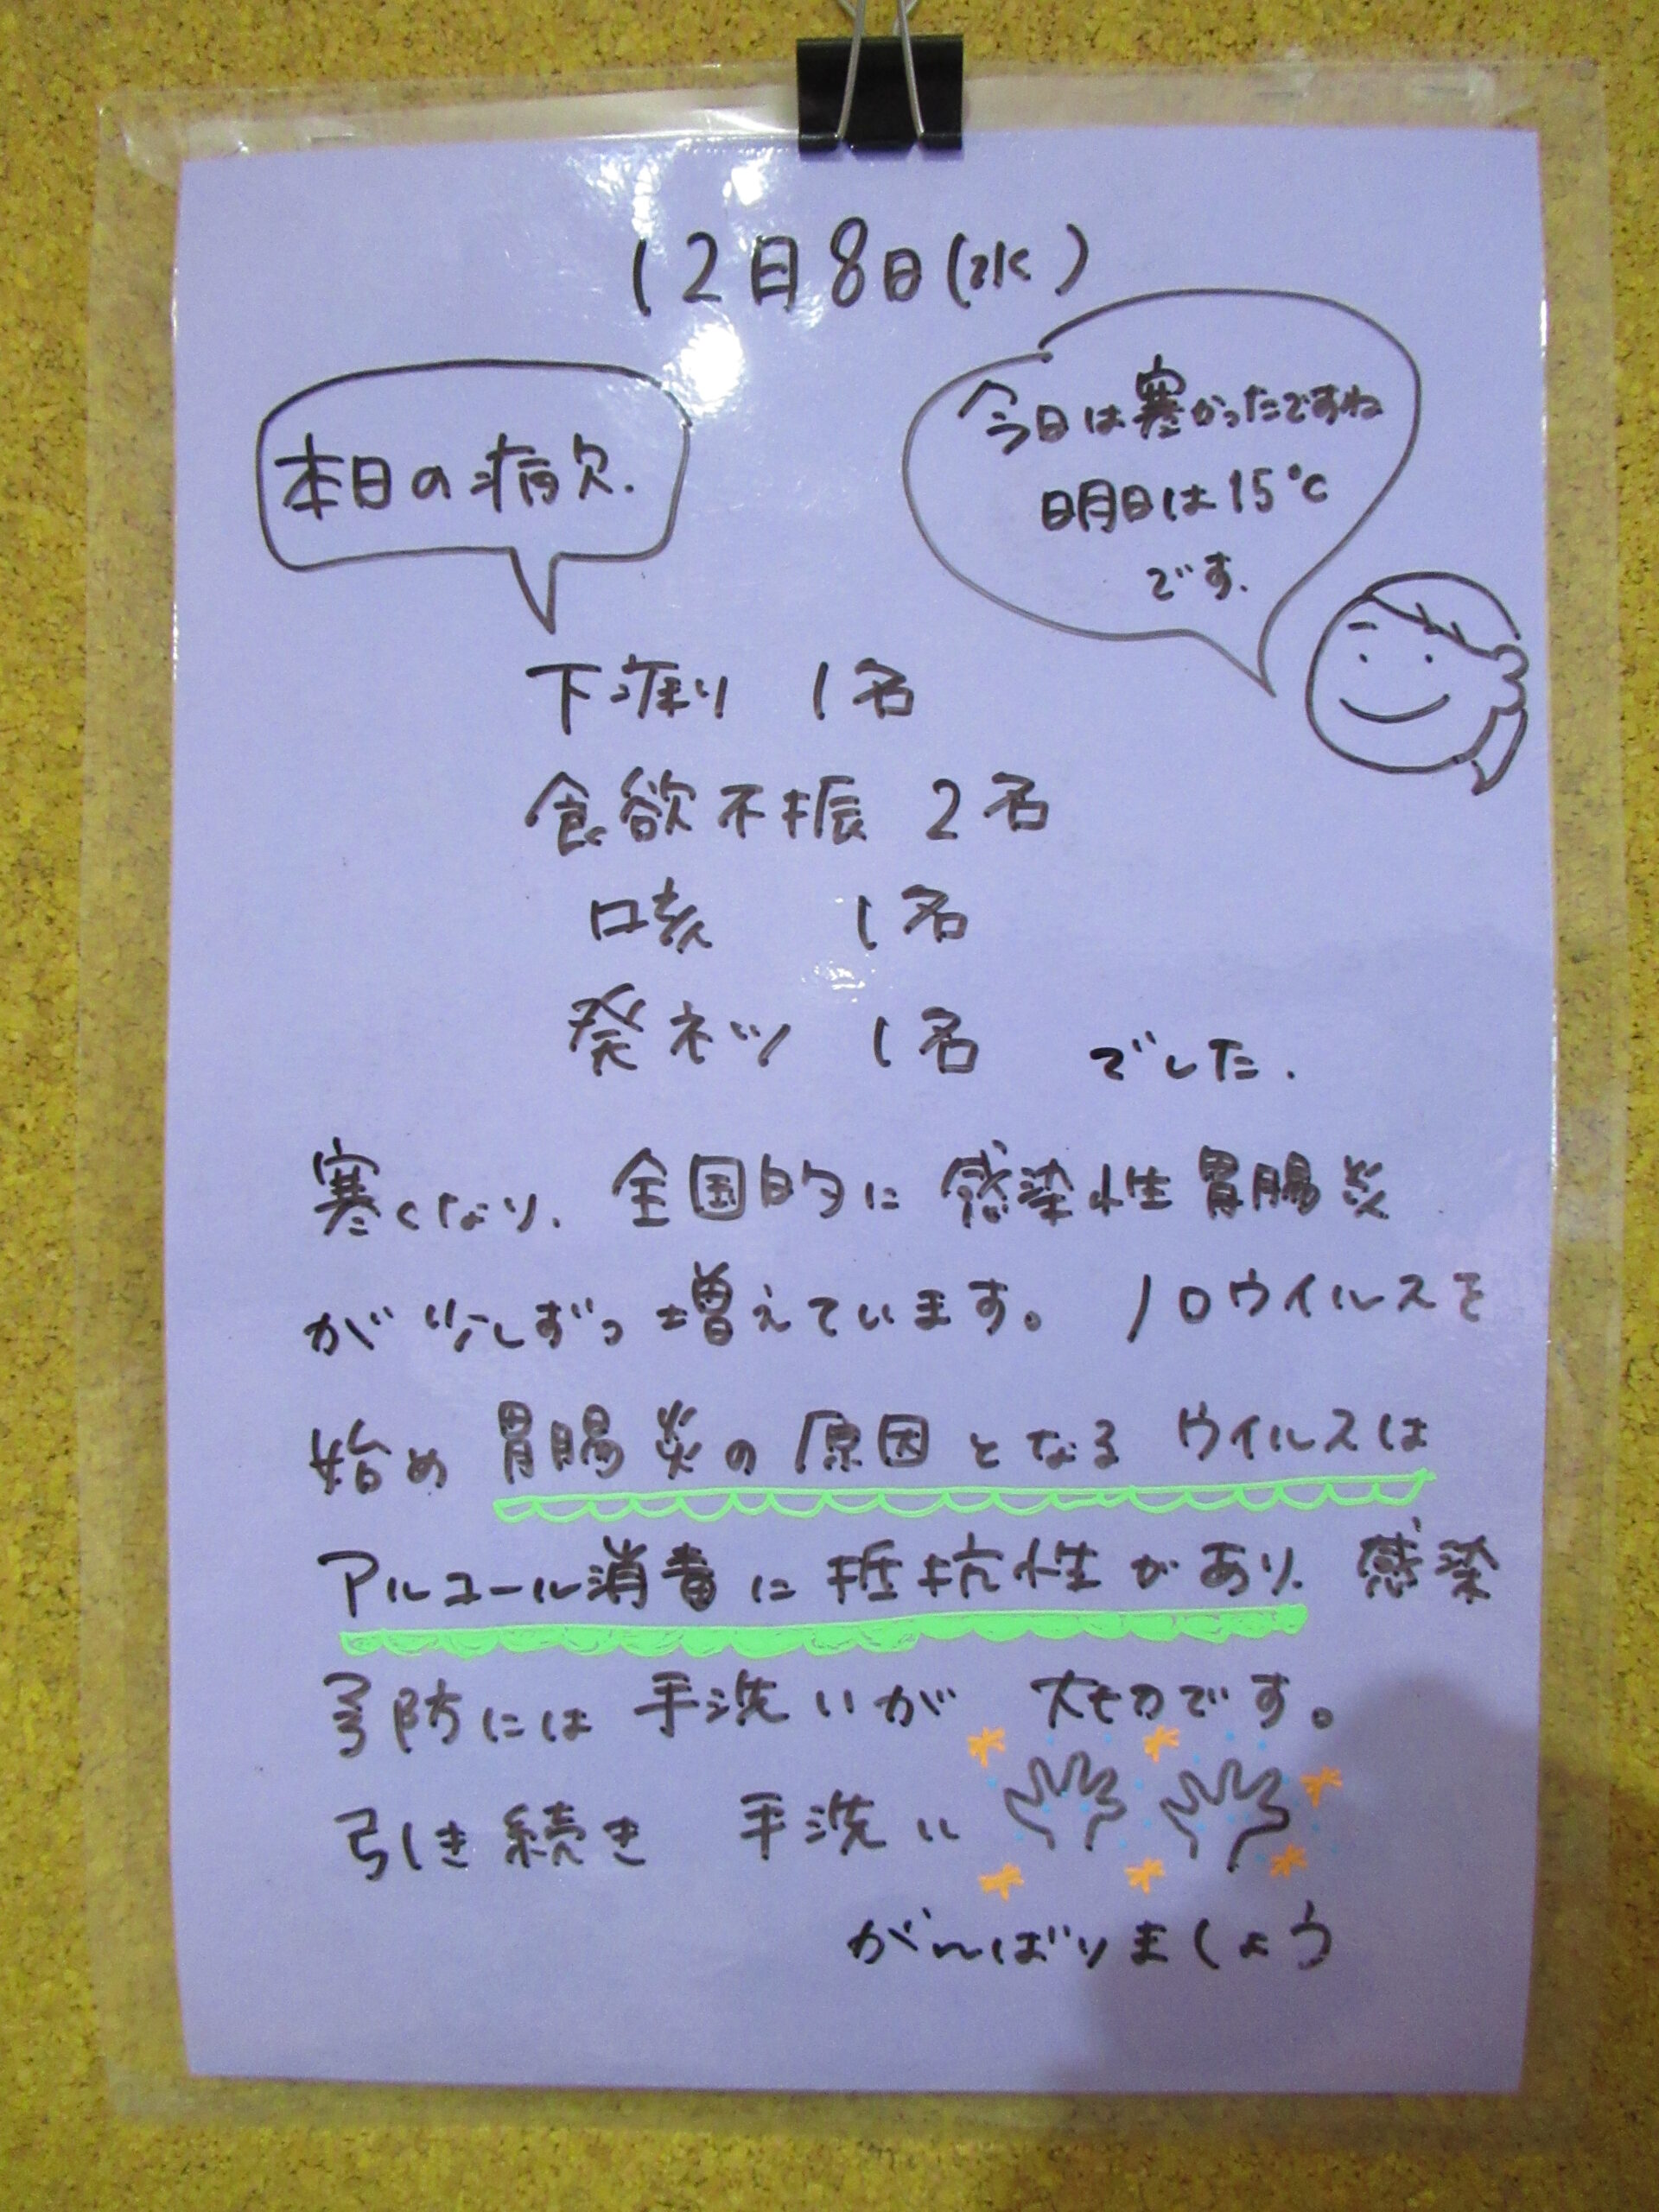 12月8日(水)
本日の病欠.
今日は寒かったですね
明日は15℃
です.
下痢 1名
食欲不振 2名
咳 1名
発ネツ 1名 でした.
寒くなり、全国的に感染性胃腸炎
が少しずつ増えています。ノロウイルスを
始め胃腸炎の原因となるウイルスは
アルコール消毒に抵抗性があり、感染
予防には手洗いが大切です。
引き続き手洗い
がんばりましょう